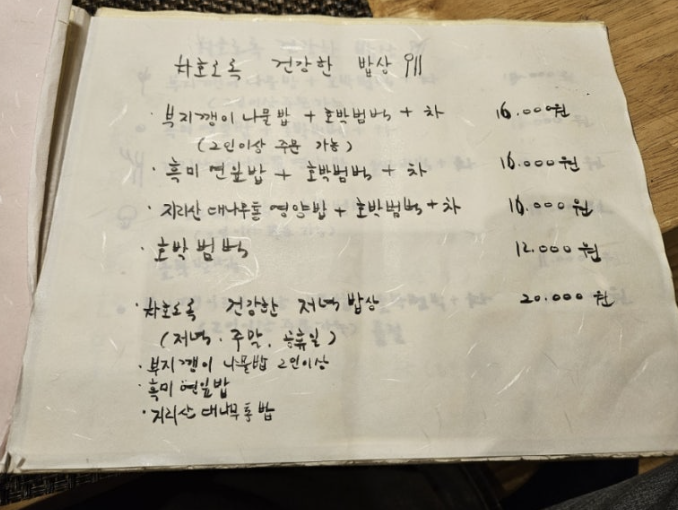 차호오록 건강한 밥상
· 부지깽이 나물밥 + 호박범벅 + 차 16.000원
(2인이상 주문 가능)
· 흑미 연잎밥 + 호박범벅 + 차 16.000원
· 지리산 대나무통 영양밥 + 호박범벅 + 차 16.000원
· 호박범벅 12.000원
· 차호오록 건강한 저녁밥상 20.000원
(저녁. 주말. 공휴일)
· 부지깽이 나물밥 2인이상
· 흑미 연잎밥
· 지리산 대나무통밥